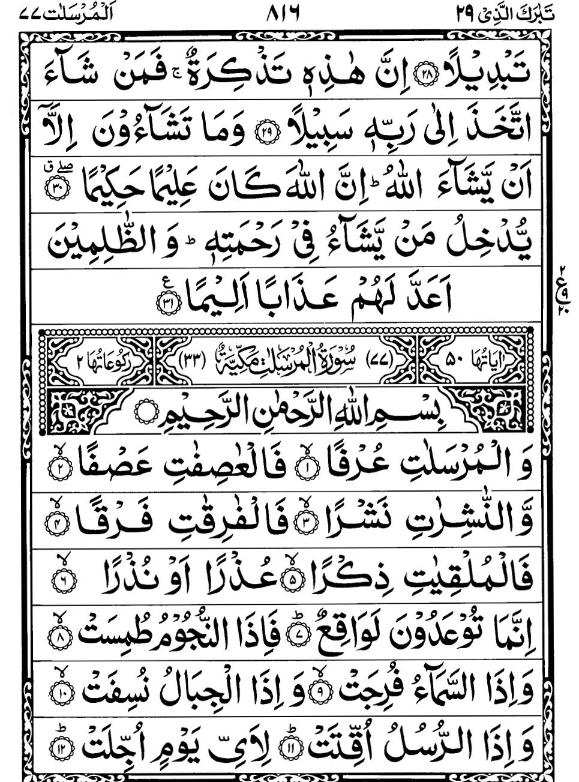 تَبٰرَكَ الَّذِیْ ۲۹ ۸۱۶ اَلْمُرْسَلٰت ۷۷
تَبْدِیْلًا ﴿۲۸﴾ اِنَّ هٰذِهٖ تَذْكِرَةٌ ۚ فَمَنْ شَآءَ
اتَّخَذَ اِلٰی رَبِّهٖ سَبِیْلًا ﴿۲۹﴾ وَمَا تَشَآءُوْنَ اِلَّاۤ
اَنْ یَّشَآءَ اللّٰهُ ؕ اِنَّ اللّٰهَ كَانَ عَلِیْمًا حَكِیْمًا ﴿۳۰﴾ صلے ق
یُّدْخِلُ مَنْ یَّشَآءُ فِیْ رَحْمَتِهٖ ؕ وَالظّٰلِمِیْنَ
اَعَدَّ لَهُمْ عَذَابًا اَلِیْمًا ﴿۳۱﴾ ع
۲ ع ۹ ۲۰
اٰیاتُهَا ۵۰ (۷۷) سُوْرَةُ الْمُرْسَلٰتِ مَكِّیَّةٌ (۳۳) رُكُوْعَاتُهَا ۲
بِسْمِ اللّٰهِ الرَّحْمٰنِ الرَّحِیْمِ
وَالْمُرْسَلٰتِ عُرْفًا ﴿۱﴾ۙ فَالْعٰصِفٰتِ عَصْفًا ﴿۲﴾ۙ
وَّالنّٰشِرٰتِ نَشْرًا ﴿۳﴾ۙ فَالْفٰرِقٰتِ فَرْقًا ﴿۴﴾ۙ
فَالْمُلْقِیٰتِ ذِكْرًا ﴿۵﴾ۙ عُذْرًا اَوْ نُذْرًا ﴿۶﴾ۙ
اِنَّمَا تُوْعَدُوْنَ لَوَاقِعٌ ﴿۷﴾ؕ فَاِذَا النُّجُوْمُ طُمِسَتْ ﴿۸﴾ۙ
وَاِذَا السَّمَآءُ فُرِجَتْ ﴿۹﴾ۙ وَاِذَا الْجِبَالُ نُسِفَتْ ﴿۱۰﴾ۙ
وَاِذَا الرُّسُلُ اُقِّتَتْ ﴿۱۱﴾ؕ لِاَیِّ یَوْمٍ اُجِّلَتْ ﴿۱۲﴾ؕ